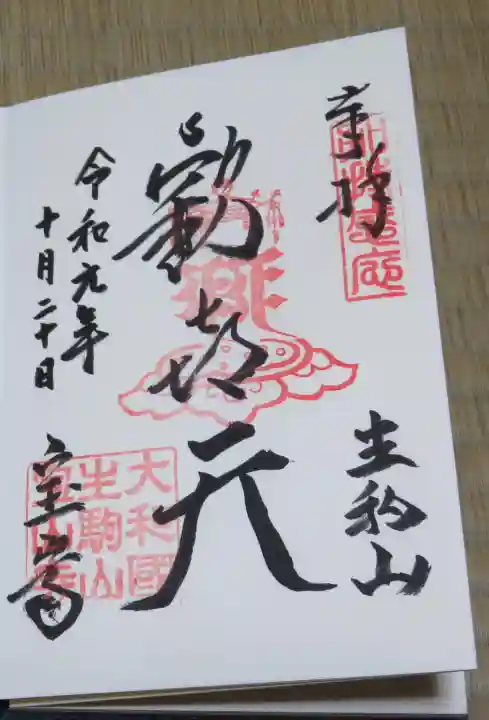 奉拝
生駒山
歓㐂天
令和元年
十月二十日
宝山寺
大和國
生駒山
寶山寺